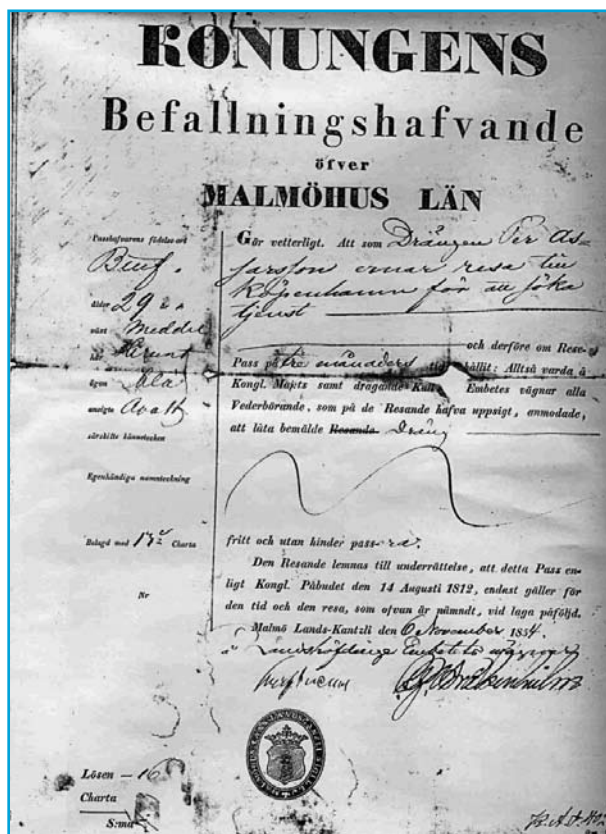 KONUNGENS
Befallningshafvande
öfver
MALMÖHUS LÄN
Passhafvarens födelseort
ålder 29
växt Meddel
hår
ögon Blå
ansigte Avalt
särskilte kännetecken
Egenhändiga namnteckning
Belagd med Charta
Nr
Gör vetterligt. Att som Drängen Per As-
sarsson ernar resa till
Köpenhamn för att söka
tjenst
och derföre om Rese-
Pass på tre månaders tid hållit: Alltså varda å
Kongl. Majts samt dragande Kall Embetes vägnar alla
Vederbörande, som på de Resande hafva uppsigt, anmodade,
att låta bemälde Resande Dräng
fritt och utan hinder passera.
Den Resande lemnas till underrättelse, att detta Pass en-
ligt Kongl. Påbudet den 14 Augusti 1812, endast gäller för
den tid och den resa, som ofvan är nämndt, vid laga påföljd.
Malmö Lands-Kantzli den 6 November 1854.
Landshöfdinge Embetets vägnar
Lösen — 16
Charta
S:ma